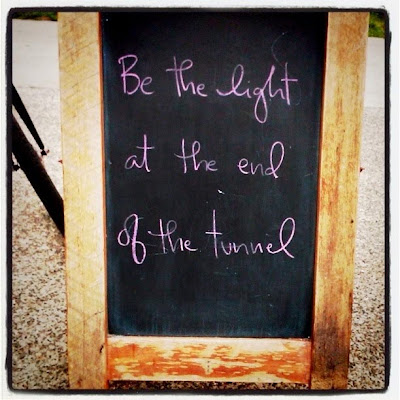 Be the light
at the end
of the tunnel